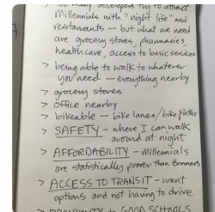 too many developers try to attract
Millenials with "night life" and
restaurants — but what we need
are grocery stores, pharmacies,
healthcare, access to basic services
> being able to walk to whatever
you need — everything nearby
> grocery stores
> office nearby
> bikeable — bike lanes/bike paths
> SAFETY — where I can walk
around at night
> AFFORDABILITY — millenials
are statistically poorer than boomers
> ACCESS TO TRANSIT — want
options and not having to drive
> PROXIMITY to GOOD SCHOOLS